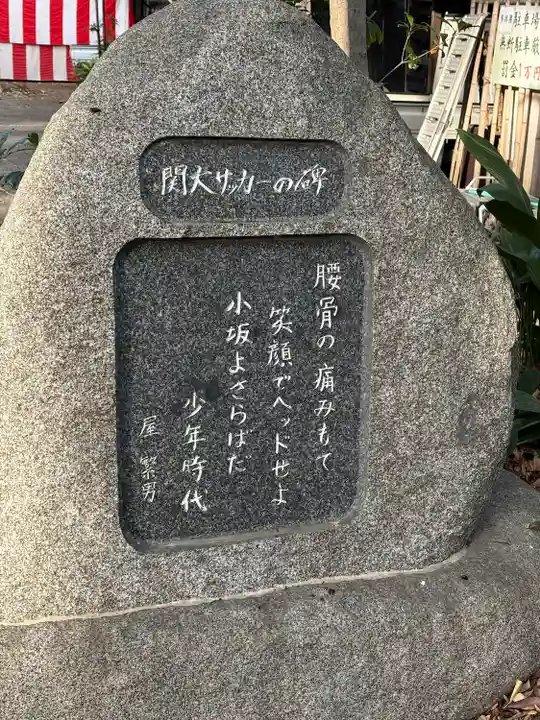 関大サッカーの碑
腰骨の痛みもて
笑顔でヘッドせよ
小坂よさらばだ
少年時代
屋 繁男
駐車場
無断駐車厳
罰金1万円